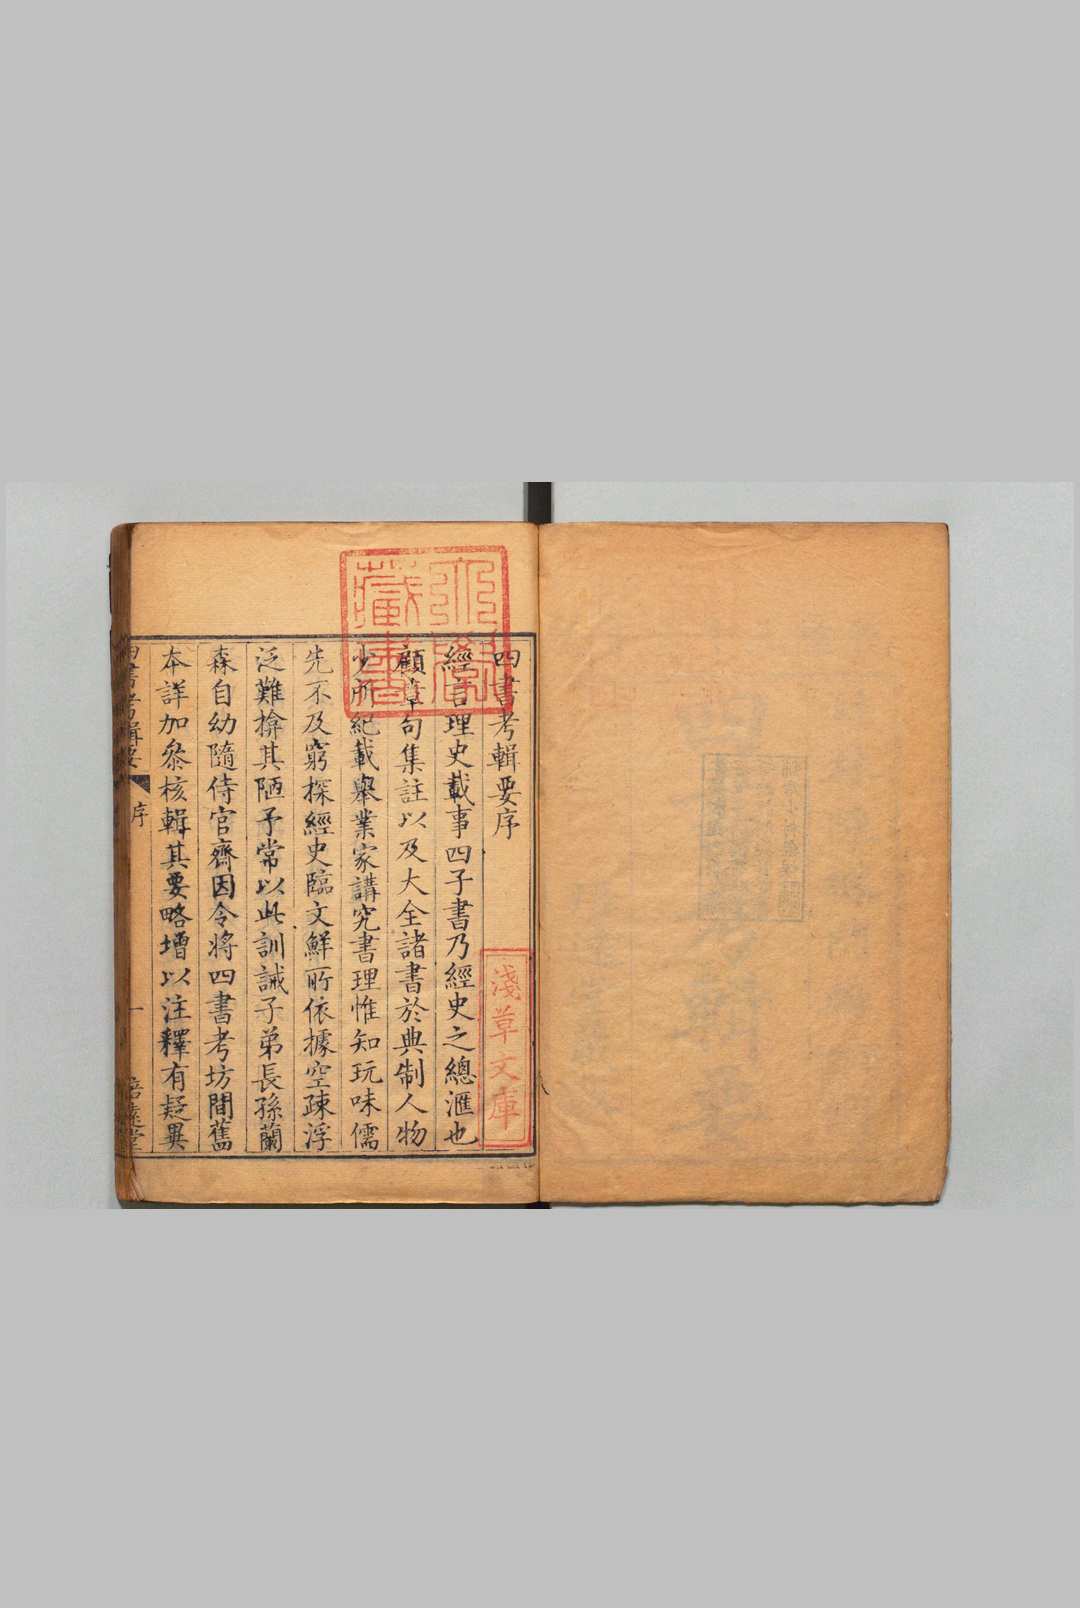 四書考輯要序
經言理史載事四子書乃經史之總滙也
顧章句集註以及大全諸書於典制人物
少所紀載舉業家講究書理惟知玩味儒
先不及窮探經史臨文鮮所依據空疎浮
泛難揜其陋予常以此訓誡子弟長孫蘭
森自幼隨侍官齋因令將四書考坊間舊
本詳加叅核輯其要略增以注釋有疑異
四書考輯要
序
一
培遠堂
淺草文庫
藏書